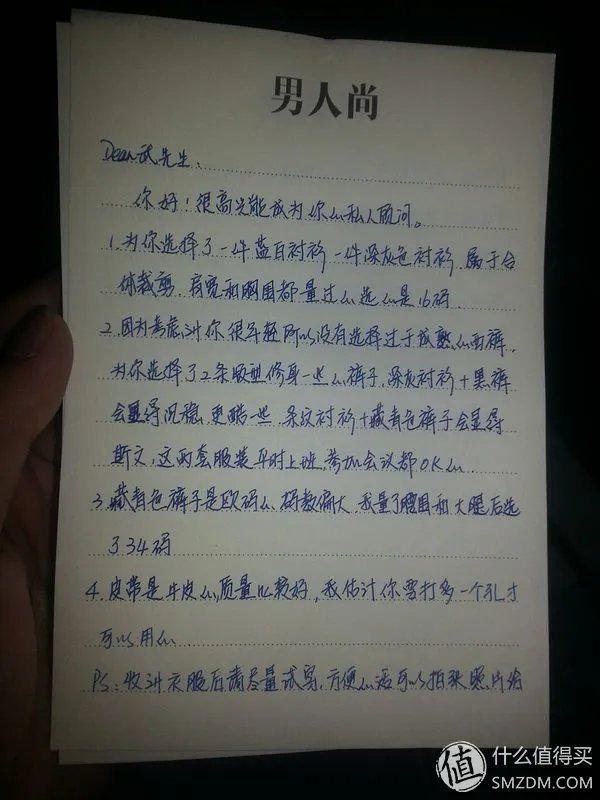 男人尚
Dear武先生:
你好!很高兴能成为你的私人顾问。
1.为你选择了一件蓝白衬衫 一件深灰色衬衫 属于合
体裁剪.肩宽和胸围都量过的选的是16码
2.因为考虑到你很年轻所以没有选择过于成熟的西裤.
为你选择了2条版型修身一些的裤子.深灰衬衫+黑裤
会显得沉稳.更酷一些.条纹衬衫+藏青色裤子会显得
斯文,这两套服装平时上班,参加会议都OK的
3.藏青色裤子是欧码的.码数偏大.我量了腰围和大腿后选
了34码
4.皮带是牛皮的,质量比较好,我估计你要打多一个孔才
可以用的
PS:收到衣服后请尽量试穿,方便的话可以拍张照片给
值 什么值得买
SMZDM.COM